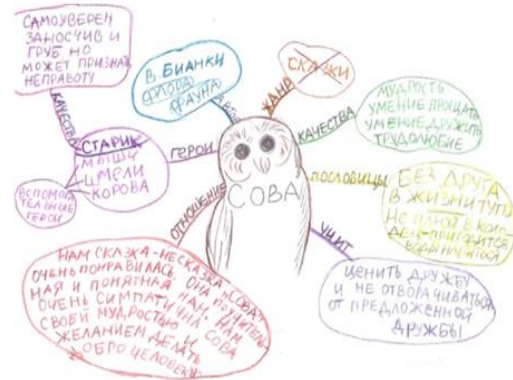 САМОУВЕРЕН
ЗАНОСЧИВ И
ГРУБ НО
МОЖЕТ ПРИЗНАТЬ
НЕПРАВОТУ
КАЧЕСТВА
СТАРИК
МЫШИ
ШМЕЛИ
КОРОВА
ВСПОМОГА
ТЕЛЬНЫЕ
ГЕРОИ
ГЕРОИ
В. БИАНКИ
ФЛОРА
ФАУНА
ЖАНР
СКАЗКИ
КАЧЕСТВА
МУДРОСТЬ
УМЕНИЕ ПРОЩАТЬ
УМЕНИЕ ДРУЖИТЬ
ТРУДОЛЮБИЕ
СОВА
ПОСЛОВИЦЫ
БЕЗ ДРУГА
В ЖИЗНИ ТУГО
НЕ ПЛЮЙ В КОЛО
ДЕЦ-ПРИГОДИТСЯ
ВОДЫ
УЧИТ
ЦЕНИТЬ ДРУЖБУ
И НЕ ОТВОРАЧИВАТЬСЯ
ОТ ПРЕДЛОЖЕННОЙ
ДРУЖБЫ
ОТНОШЕНИЕ
НАМ СКАЗКА-НЕСКАЗКА "СОВА"
ОЧЕНЬ ПОНРАВИЛАСЬ. ОНА ПОУЧИТЕЛЬ
НАЯ И ПОНЯТНАЯ НАМ. НАМ
ОЧЕНЬ СИМПАТИЧНА СОВА
СВОЕЙ МУДРОСТЬЮ И
ЖЕЛАНИЕМ ДЕЛАТЬ
ОБРО ЧЕЛОВЕКУ